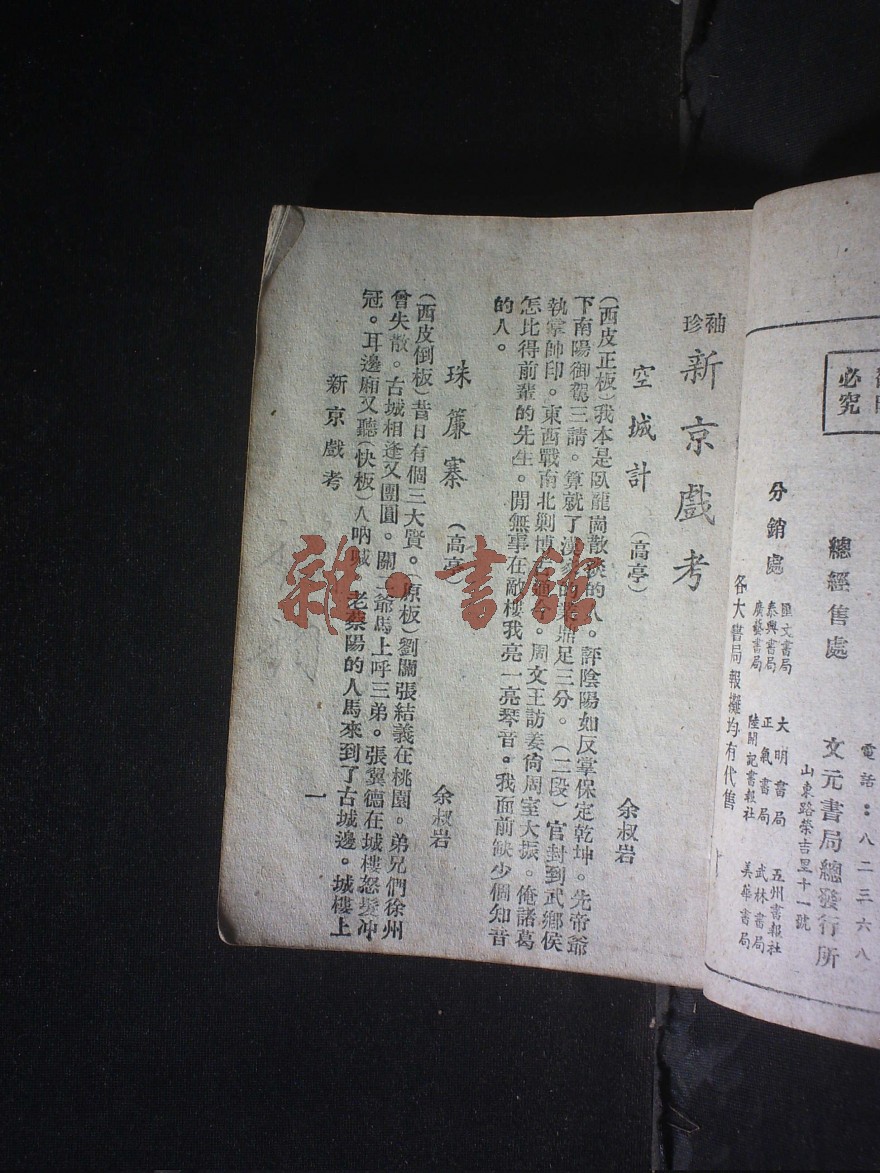 翻印
必究
總經售處
文元書局總發行所
電話：八二三六八
山東路榮吉里十一號
分銷處
匯文書局
泰興書局
廣藝書局
大明書局
正氣書局
陸開記書報社
五州書報社
武林書局
美華書局
各大書局報攤均有代售
袖珍
新京戲考
空城計
(高亭)
余叔岩
(西皮正板)我本是臥龍崗散淡的人。評陰陽如反掌保定乾坤。先帝爺
下南陽御駕三請。算就了漢家的業鼎足三分。(二段)官封到武鄉侯
執掌帥印。東西戰南北剿博古通今。周文王訪姜尙周室大振。俺諸葛
怎比得前輩的先生。閒無事在敵樓我亮一亮琴音。我面前缺少個知音
的人。
珠簾寨
(高亭)
余叔岩
(西皮倒板)昔日有個三大賢。(原板)劉關張結義在桃園。弟兄們徐州
曾失散。古城相逢又團圓。關二爺馬上呼三弟。張翼德在城樓怒髮冲
冠。耳邊廂又聽(快板)人吶喊 老蔡陽的人馬來到了古城邊。城樓上
新京戲考
一
雜·書館